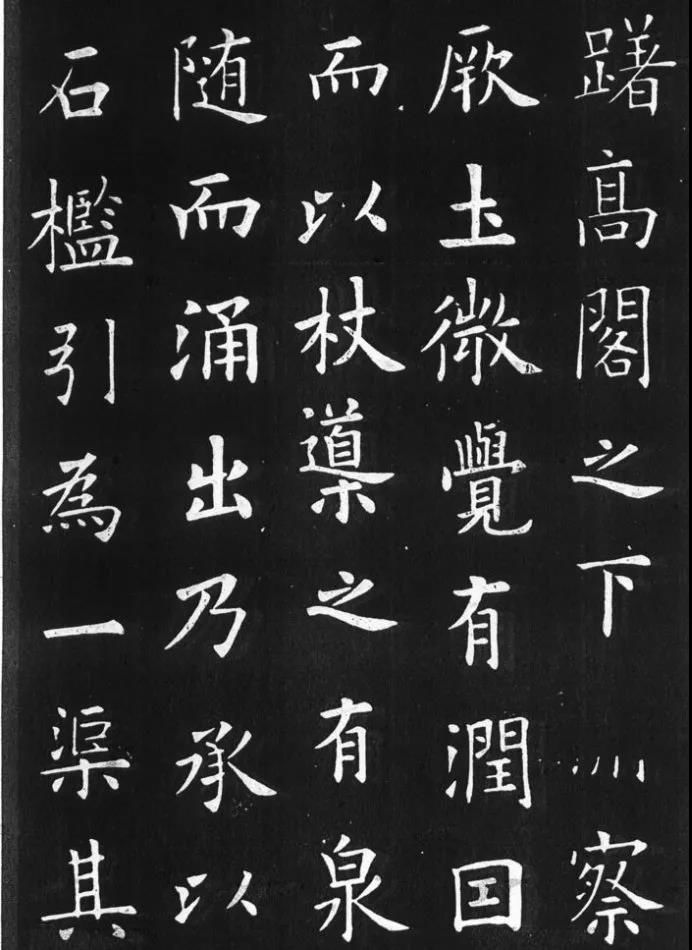 躇髙閣之下察
厥圡微覺有潤因
而以杖導之有泉
随而涌出乃承以
石檻引為一渠其